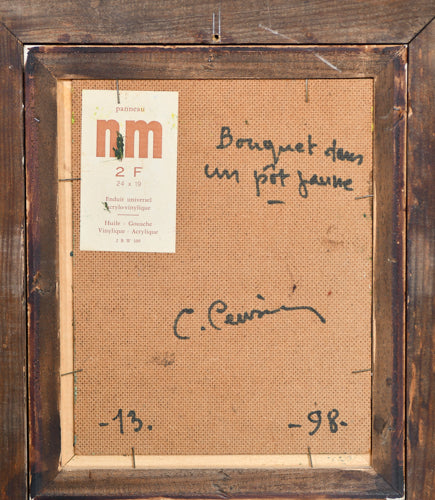 panneau
nm
2 F
24 x 19
Enduit universel
Acrylo-vinylique
Huile - Gouache
Vinylique - Acrylique
Bouquet dans
un pôt jaune
C.
-13.
-98-